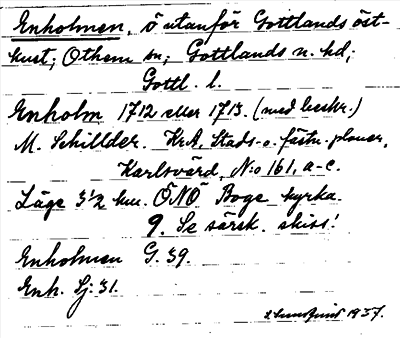 Enholmen, ö utanför Gottlands öst-
kust; Othem sn; Gottlands n. hd;
Gottl. l.
Enholm 1712 eller 1713. (med beskr.)
M. Schillder. KrA, Stads- o. fästn. planer,
Karlsvärd, N:o 161, a-c.
Läge 3 1/2 km. ÖNÖ Boge kyrka.
9. Se särsk. skiss!
Enholmen G. 39.
Enh. Sj: 31.
1937.